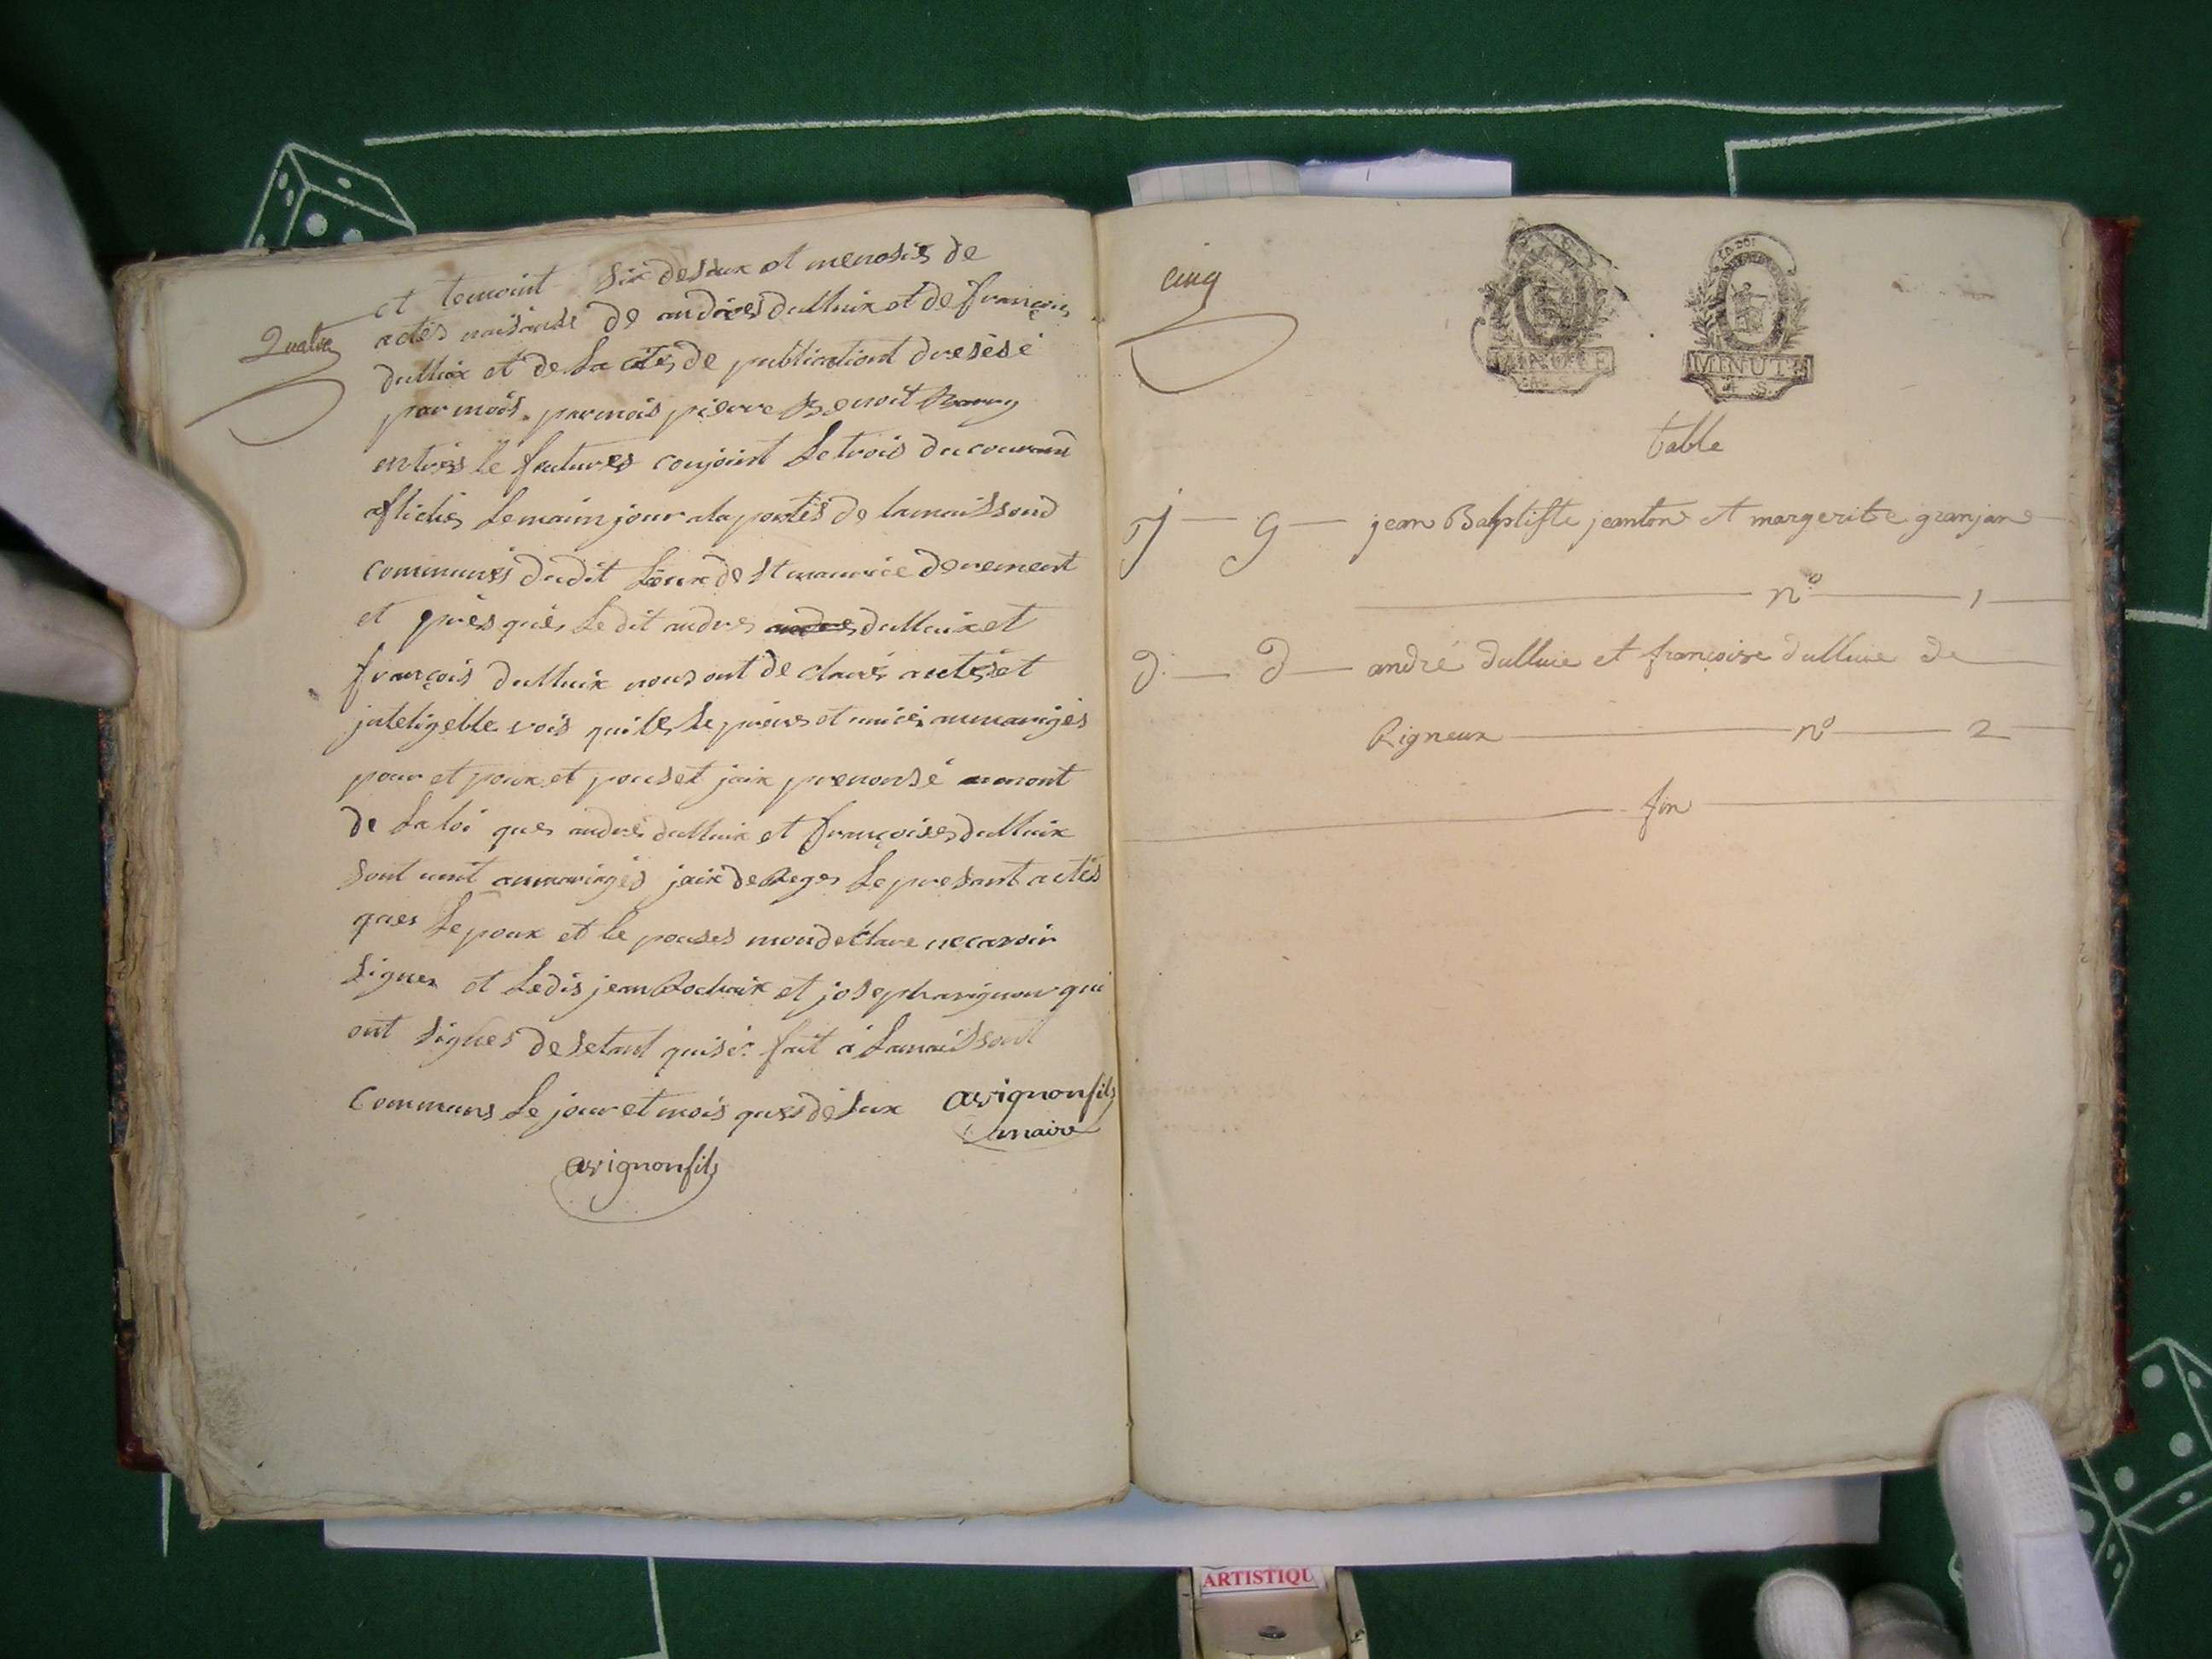 Quatre
et temoint six desaux et menosis de
actes naisanse de andres dulluix et de françois
dulluix et de La ctes de publicationt dresésé
par mois parmois pierre Benoit Barry
entres le feutures conjoint Le trois du courant
afichés Lemaim jour ala portés de lamaissond
communés dudit Lieux de st maurice de rement
et près qués Le dit andres andres dulluix et
françois dulluix nous ont de clarés autés et
inteligeble vois quiles le prives et unies ammarigés
pour et poux et pouset jaix prenonsé aunont
de La loi ques andres dulluix et françoises dulluix
sont unit ammariagés jaix de Reges Le presant actés
ques Lepoux et le pouses mondeklare necavoir
signer et Ledis jean Rochaix et joseph avignon qui
ont signes desetant quisér fait a Lamaissont
Communs Le jour et mois ques dessux
avignon fils
maire
avignon fils
cinq
LA LOI
MINUTE
MINUTE
4 S.
table
J — G — jean Babptiste jeanton et margerite granjan
n° — 1 —
D. — D — andré dulluie et françoise dulluie de
Rigneux — n° — 2 —
fin
ARTISTIQU